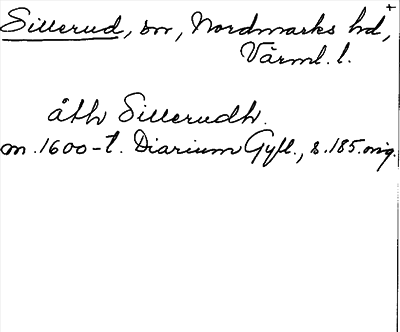 Sillerud, sn, Nordmarks hd,
Värml. l.
åth Sillerudh.
m. 1600-t. Diarium Gyll., s. 185. orig.